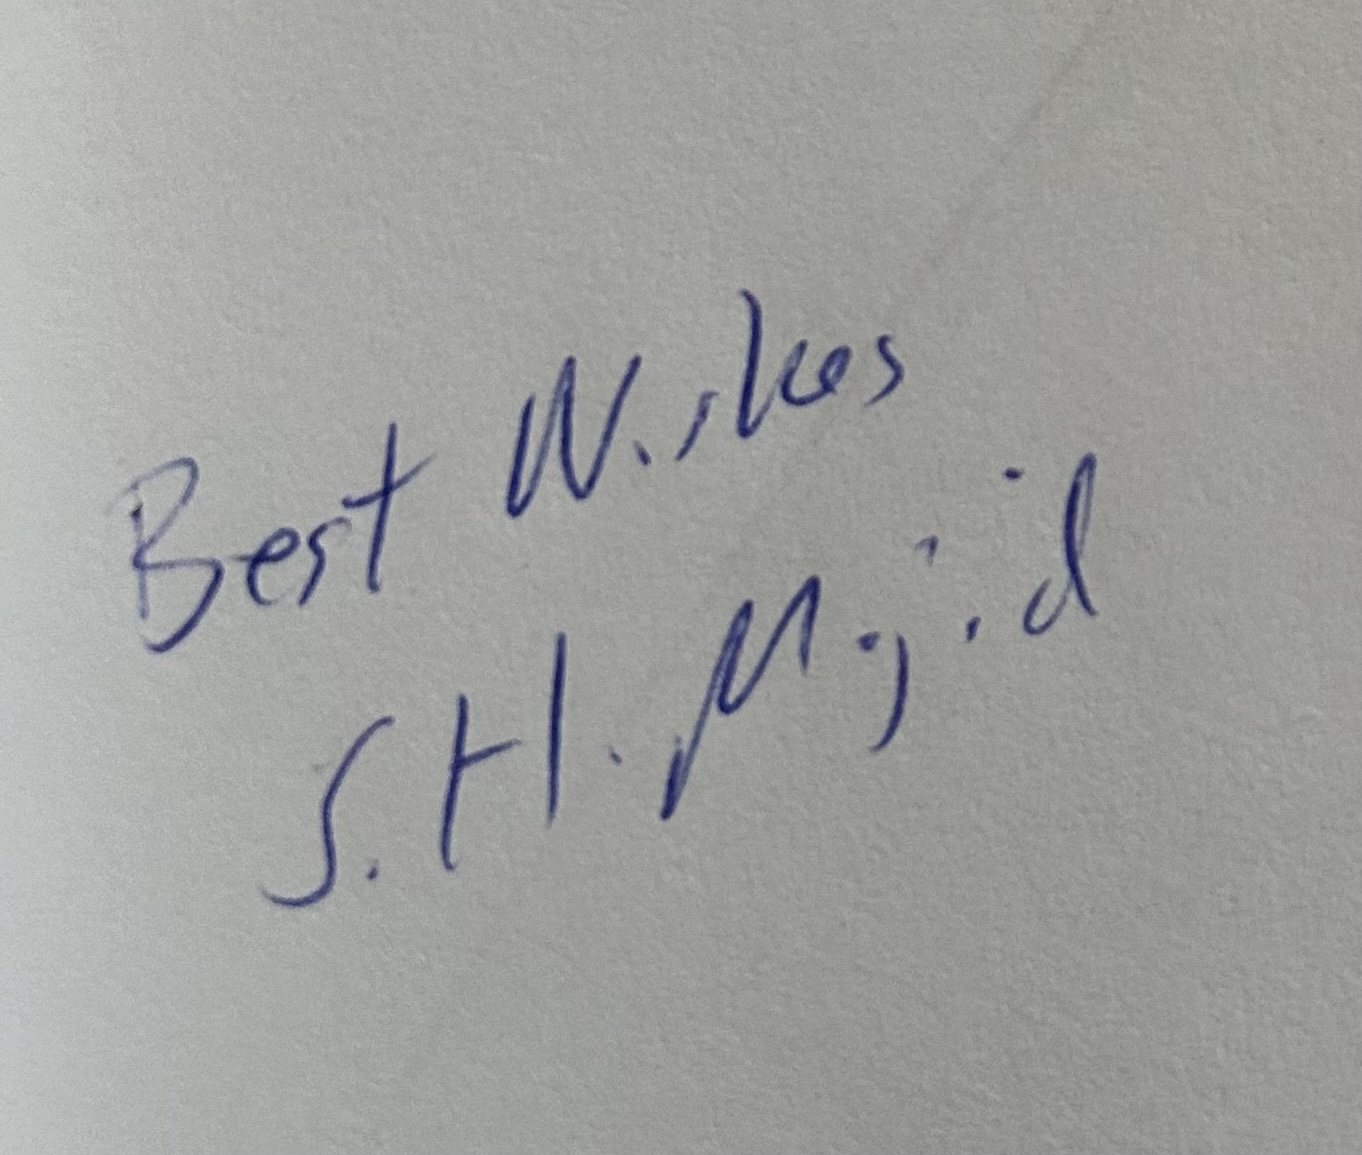 Best Wishes
S. H. Majid